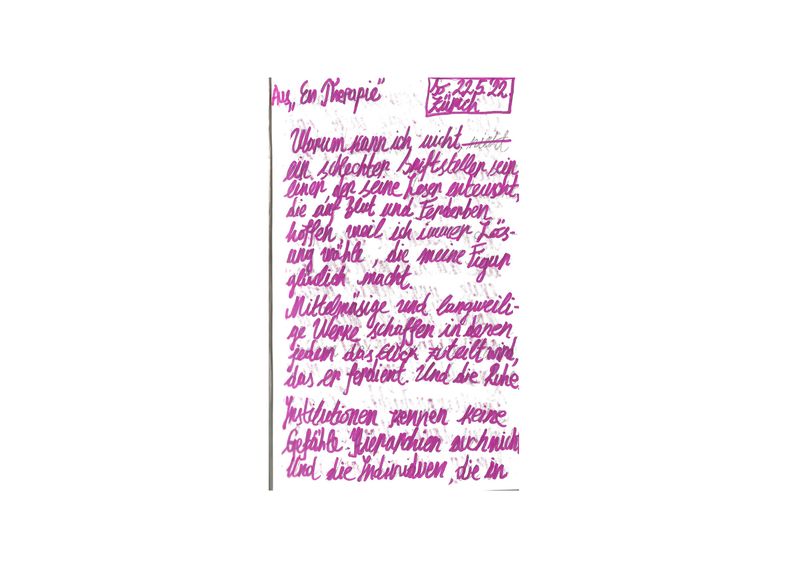 Aus „En Therapie"
So 22.5.'22
Zürich
Warum kann ich nicht nicht
ein schlechter Sriftsteller sein,
einer der seine Leser enteuscht,
die auf Blut und Ferderben
hoffen weil ich immer Lös-
ung wähle, die meine Figur
glüclich macht.
Mittelmäsige und langweili-
ge Werke schaffen in denen
jedem das Glück zuteilt wird,
das er ferdient. Und die Ruhe.
Institutionen kennen keine
Gefühle. Hierarchien auch nicht
Und die Individuen, die in